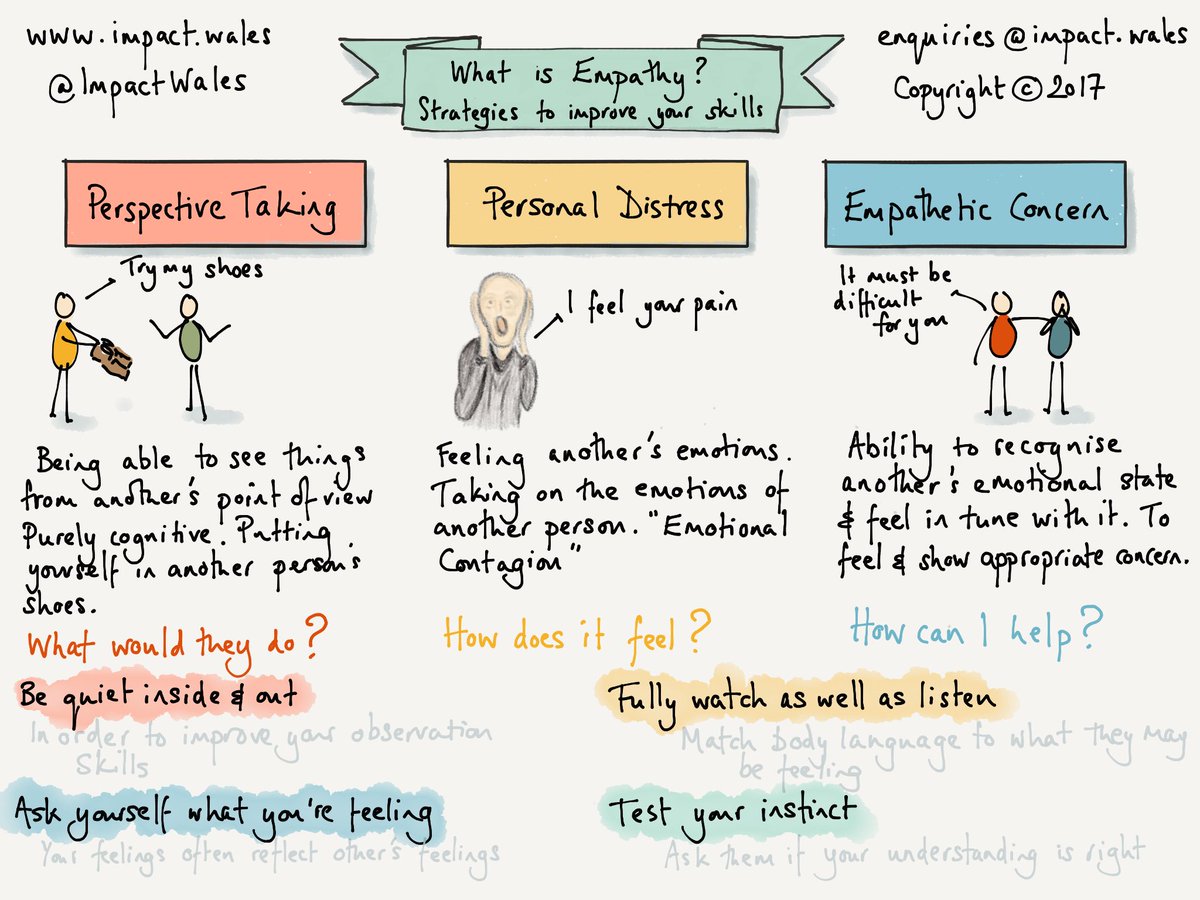 www.impact.wales
@ImpactWales
What is Empathy?
Strategies to improve your skills
enquiries @impact.wales
Copyright © 2017
Perspective Taking
Try my shoes
Being able to see things
from another's point of view
Purely cognitive. Putting
yourself in another person's
shoes.
What would they do?
Personal Distress
I feel your pain
Feeling another's emotions.
Taking on the emotions of
another person. "Emotional
Contagion"
How does it feel?
Empathetic Concern
It must be
difficult
for you
Ability to recognise
another's emotional state
& feel in tune with it. To
feel & show appropriate concern.
How can I help?
Be quiet inside & out
In order to improve your observation
Skills
Fully watch as well as listen
Match body language to what they may
be feeling
Ask yourself what you're feeling
Your feelings often reflect other's feelings
Test your instinct
Ask them if your understanding is right